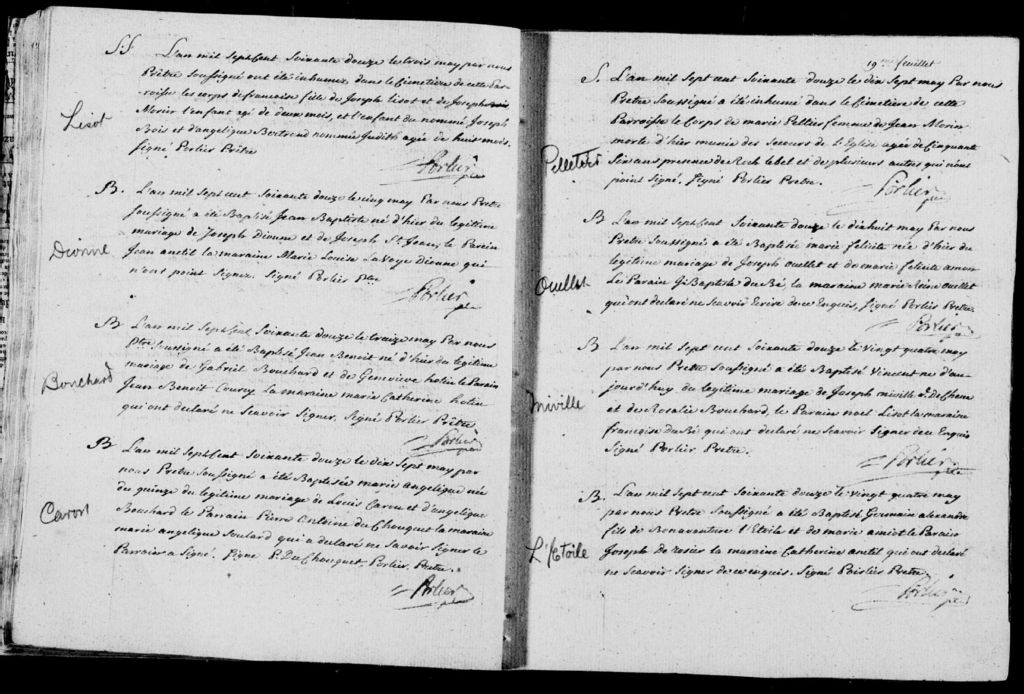 S:S L'an mil sept Cent Soixante douze le trois may par nous
Prêtre Soussigné ont été inhumez dans le Cimetiere de cette Par
Lisot
roisse les corps de francoise fille de Joseph Lisot et de Joseph
Morier l'enfant agé de deux mois, et l'enfant du nommé Joseph
Bois et d'angelique Bertrend nommée Judith agée de huit mois.
signé Porlier Prêtre
Porlier ptre
B. L'an mil Sept cent Soixante douze le cinq may Par nous Prêtre
Soussigné a été Baptisé Jean Baptiste né d'hier du legitime
Dionne
mariage de Joseph Dioune et de Joseph St Jean, le Parein
Jean anctil la maraine Marie Louise La Voye Dionne qui
n'ont point Signez. Signé Porlier Ptre
Porlier ptre
B L'an mil Sept Cent Soixante douze le traize may Par nous
Ptre Soussigné a été Baptisé Jean Benoit né d'hier du legitime
Bouchard
mariage de Gabriel Bouchard et de Genevieve hotin le Parain
Jean Benoit Couroy La maraine marie Catherine hotin
qui ont declaré ne Scavoir Signer, Signé Porlier Prêtre
Porlier ptre
B L'an mil Sept Cent Soixante douze le dix Sept may par
nous Pretre Soussigné a été Baptisée marie angelique née
du quinze du legitime mariage de Louis Caron et d'angelique
Caron
Bouchard le Parrain Pierre Antoine du Chouquet la maraine
marie angelique Soulard qui a declaré ne Savoir Signer le
Parrain a Signé. Signé P. Du Chouquet Porlier, Pretre.
Porlier ptre
19me feuillet
S. L'an mil Sept cent Soixante douze le dix Sept may Par nous
Pretre Soussigné a été inhumé dans le Cimetiere de cette
Parroisse le Corps de marie Peltier femme de Jean Morin
morte d'hier munie des Secours de l'Eglise agée de Cinquante
Pelletier
Six ans presence de Roch lebel et de plusieurs autres qui n'ont
point Signé. Signé Porlier Pretre.
Porlier ptre
B L'an mil Sept Cent Soixante douze le dixhuit may Par nous
Pretre Soussigné a été Baptisé marie felicité née d'hier du
legitime mariage de Joseph Ouellet et de marie felicité amon
Ouellet
Le Parain J. Baptiste du Bé, la maraine marie Reine Ouellet
qui ont declaré ne Scavoir Ecrire de ce Enquis, Signé Porlier Pretre
Porlier ptre
B L'an mil Sept cent Soixante douze le Vingt quatre may
par nous Pretre Soussigné a été Baptisé Vincent né d'au-
jourd'huy du legitime mariage de Joseph miville d. deChene
Miville
et de Rosalie Bouchard, le Parain noel Lisot la maraine
françoise du Bé qui ont declaré ne Scavoir Signer de ce Enquis
Signé Porlier Pretre.
Porlier ptre
B. L'an mil Sept cent Soixante douze le Vingt quatre may
par nous Pretre Soussigné a été Baptisé Germain alexandre
fils de Bonaventure l'Etoile et de marie amiot le Parain
L'Etoile
Joseph de Rosier la maraine Catherine anctil qui ont declaré
ne Scavoir Signer de ce enquis. Signé Porlier Pretre.
Porlier ptre